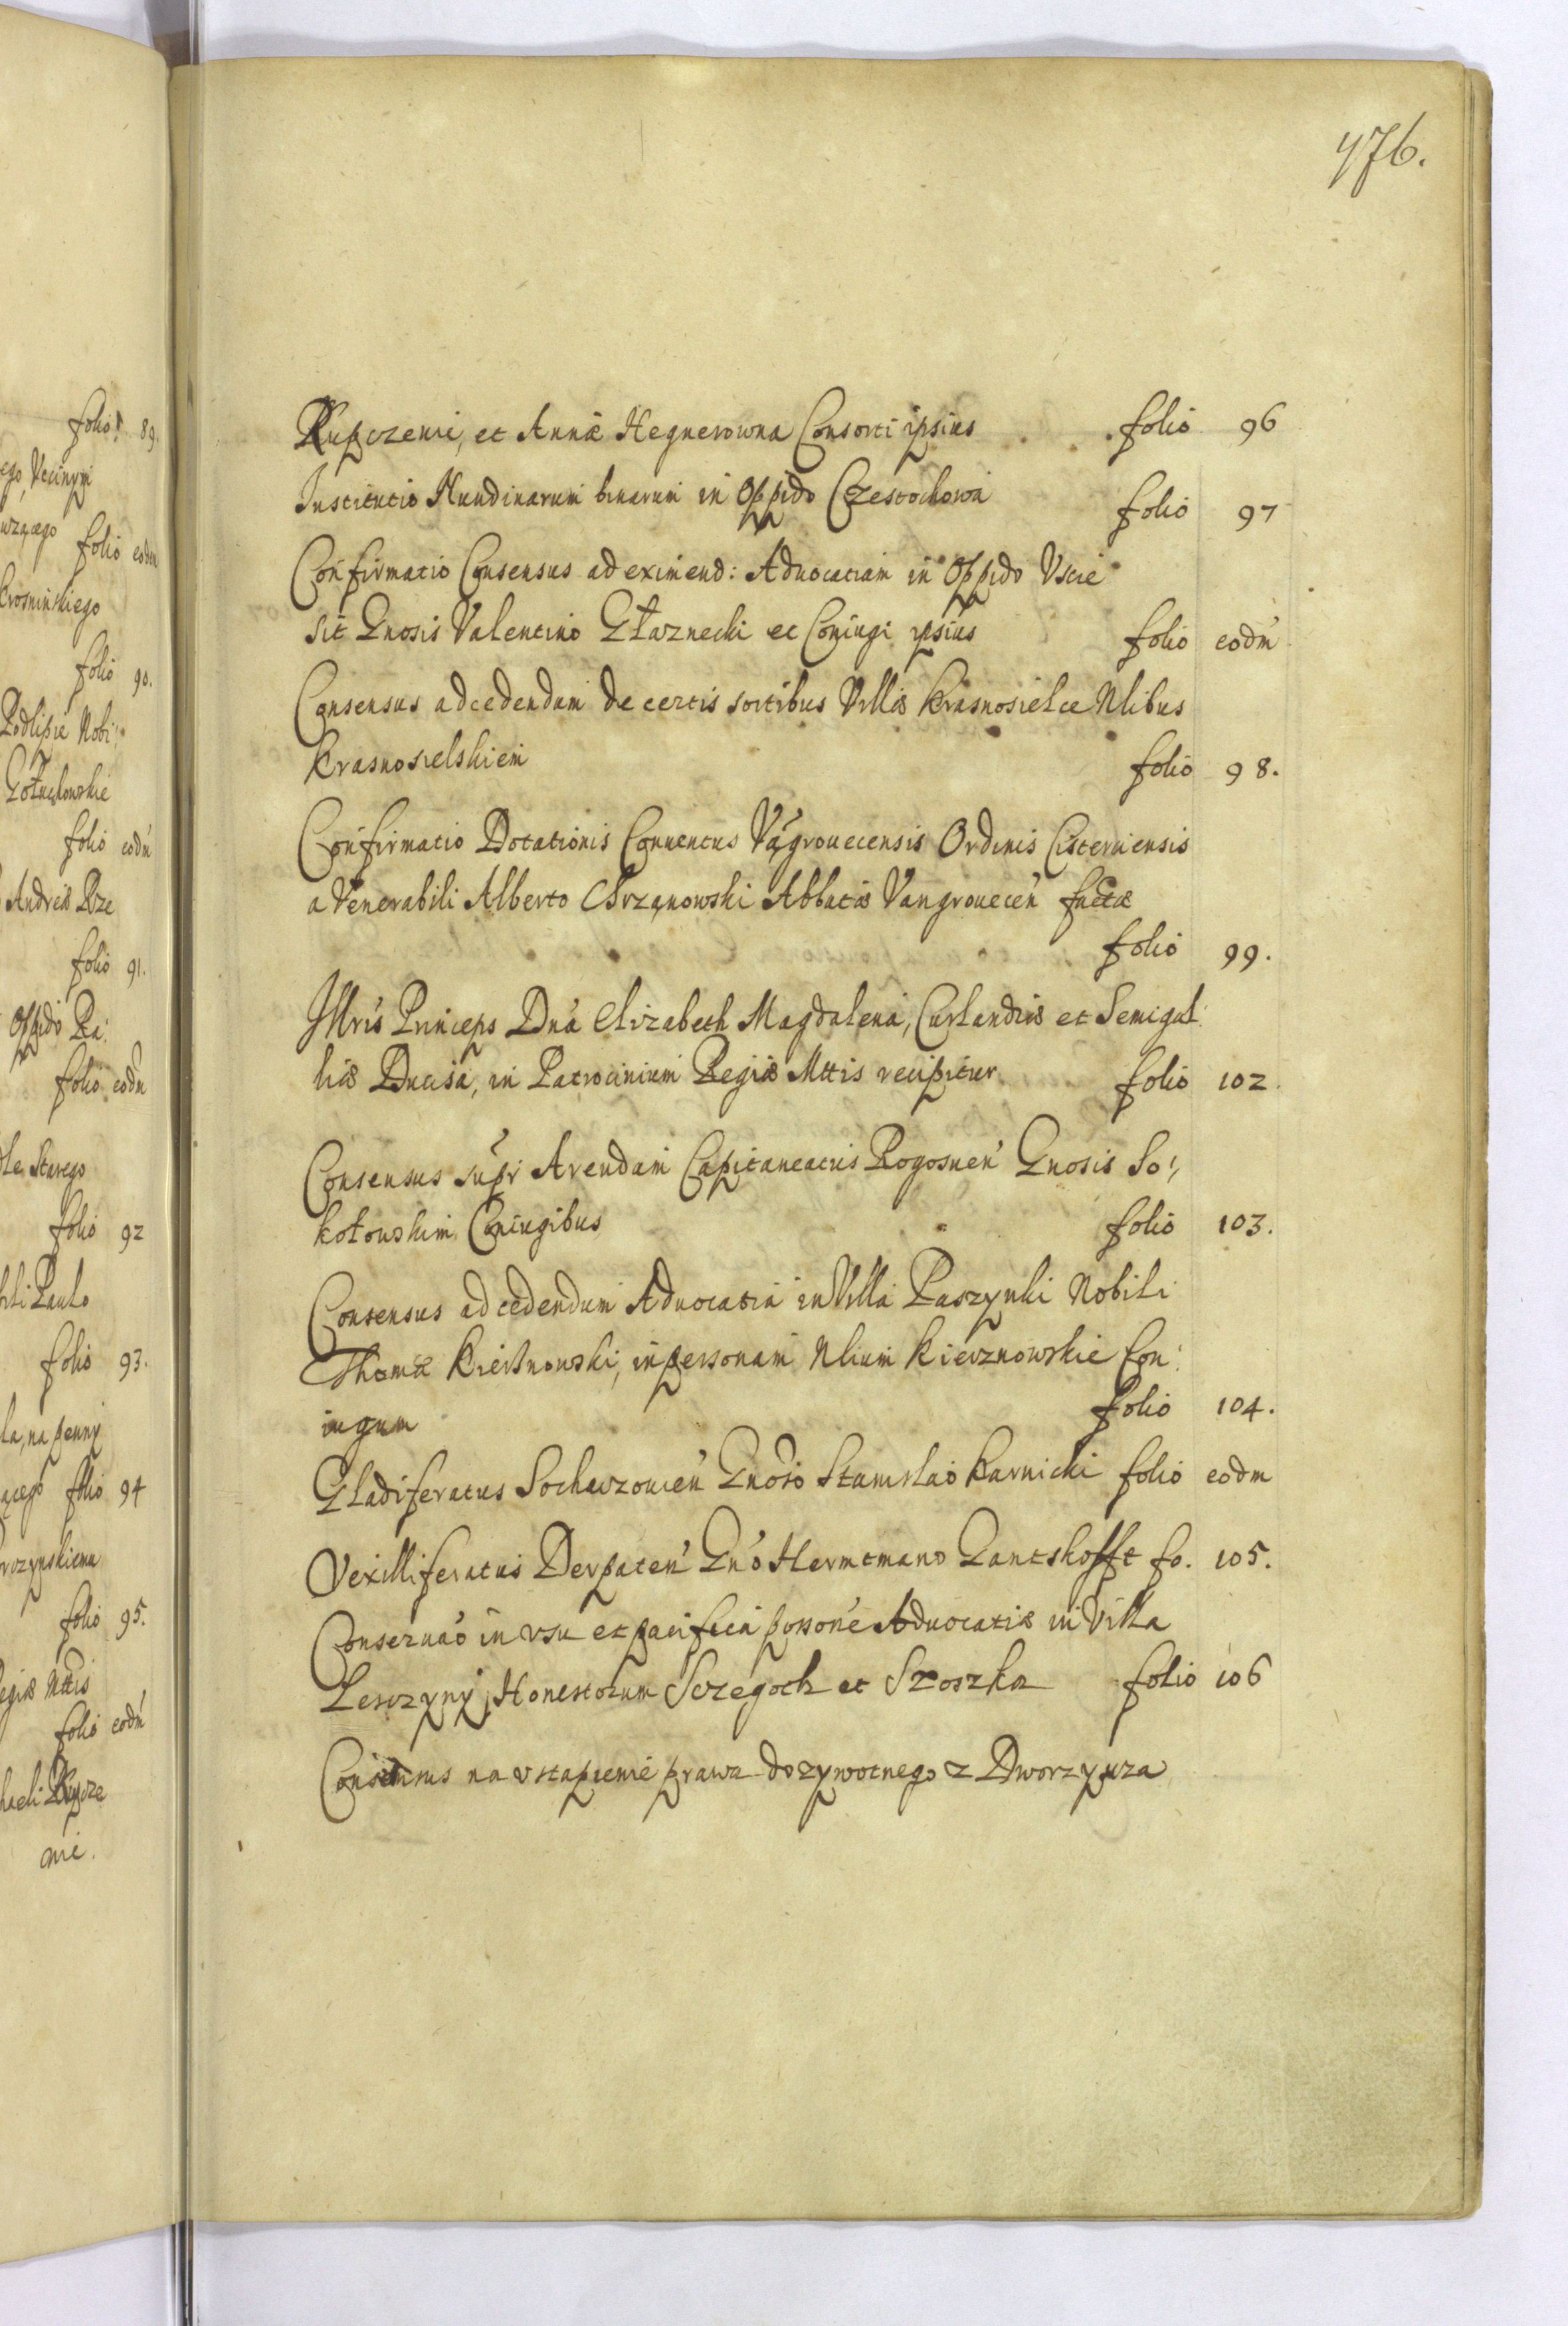 folio 89.
ego, Vecinyni
folio eodm
Krosninskiego
folio 90.
Podlipie Nobi:
folio eodm
Andreæ Rze
folio 91.
Oppido Ra:
folio eodm
Starego
folio 92
Paulo
folio 93.
la, na
folio 94
folio 95.
Regiæ Mttis
folio eodm
haeli Rupcze
nie.
476.
Rupczenie, et Annæ Hegnerowna Consorti ipsius folio 96
Institutio Nundinarum binarum in Oppido Czestochowa folio 97
Confirmatio Consensus ad eximend: Aduocatiam in Oppido Vscie
sit Gnosis Valentino Głaznecki et Coniugi ipsius folio eodm
Consensus ad cedendum de certis sortibus Villæ Krasnosielce Nlibus
Krasnosielskiem folio 98.
Confirmatio Dotationis Conuentus Vągrouecensis Ordinis Cisterniensis
a Venerabili Alberto Chrząnowski Abbatæ Vangrouecen factæ
folio 99.
Illris Princeps Dna Elizabeth Magdalena, Curlandiæ et Semigal:
liæ Ducisa, in Patrocinium Regiæ Mttis recipitur folio 102.
Consensus supr Arendam Capitaneatus Rogosnen Gnosis So:
kołowskim Coniugibus folio 103.
Consensus ad cedendum Aduocatia in Villa Paszynki Nobili
Thomæ Kiersnowski, in personam Nlium Kierznowskie Con:
iugum folio 104.
Gladiferatus Sochaczouien Gnoso Stanislao Karnicki folio eodm
Vexilliferatus Derpaten Gno Hermtmano Gantshofft fo. 105.
Conseruao in vsu et pacifica possone Aduocatiæ in Villa
Lesczyny Honestorum Sczegoch et Szoszka folio 106
Consensus na vstapienie prawa dozywotnego z Dworzyscza